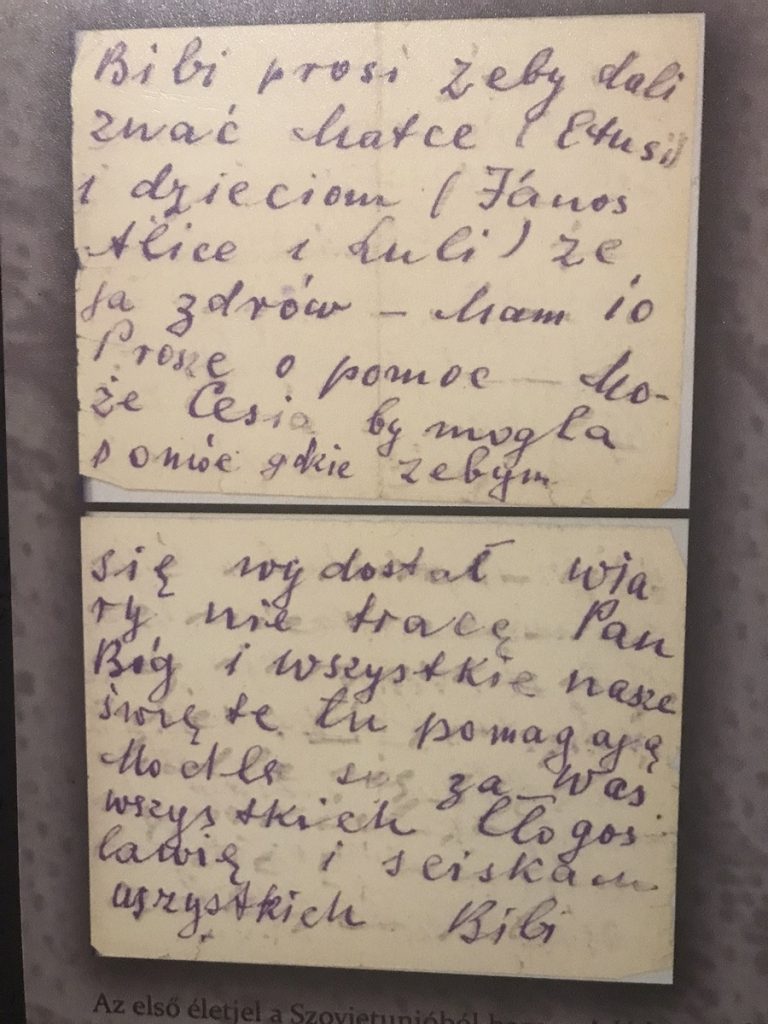 Bibi prosi żeby dali
znać Matce (Etusi)
i dzieciom (János
Alice i Luli) że
ja zdrów – Mam io
Proszę o pomoc – Mo-
że Cesia by mogła
pomóc gdzie żebym
się wydostał wia
ry nie tracę Pan
Bóg i wszystkie nasze
święte tu pomagają
Modlę się za was
wszystkich błogos
ławię i sciskam
wszystkich Bibi
Az első életjel a Szovjetunióból